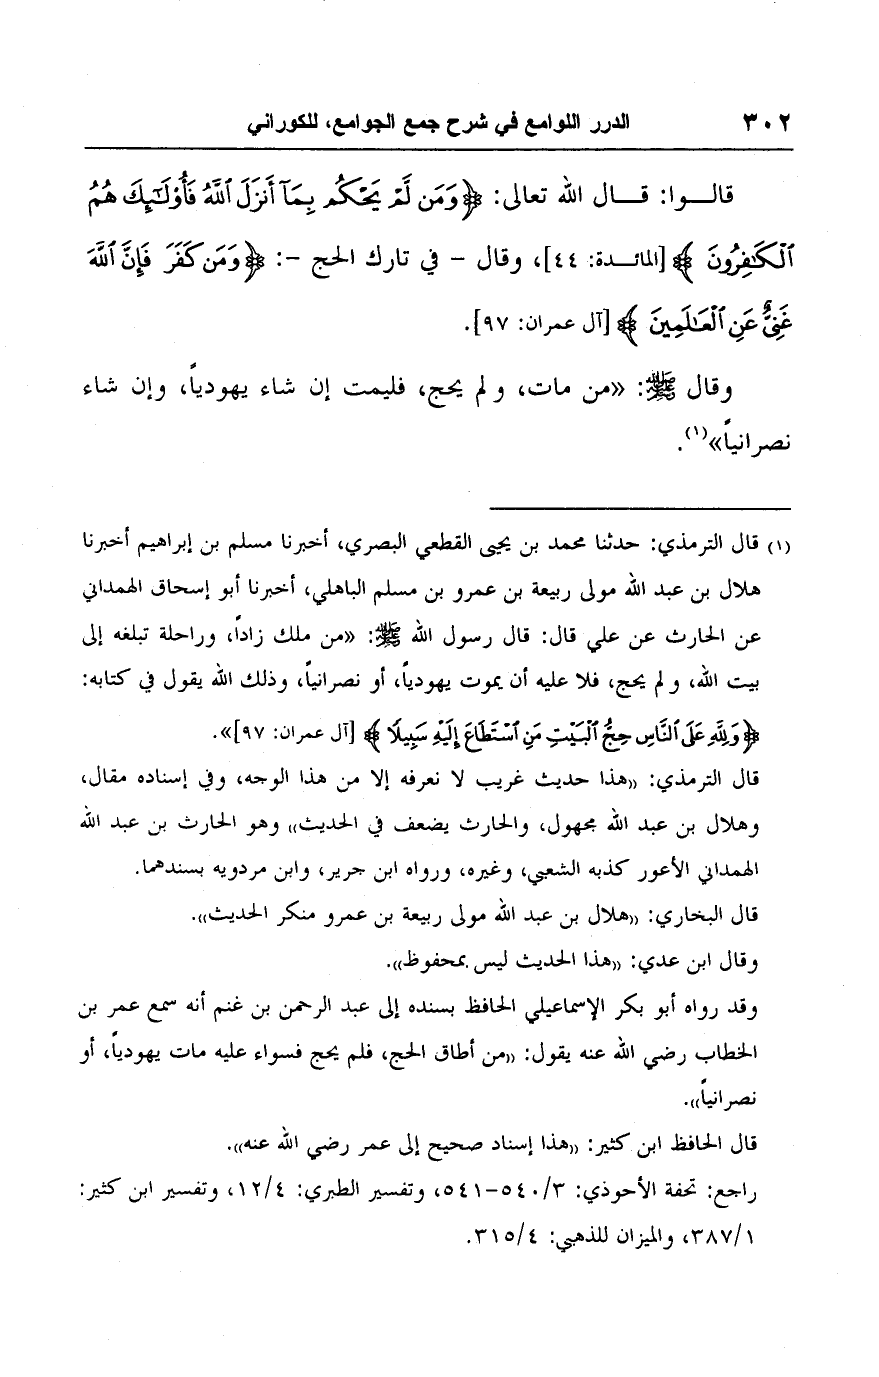 ٣٠٢ الدرر اللوامع في شرح جمع الجوامع، للكوراني
قالوا: قال الله تعالى: ﴿وَمَن لَّمْ يَحْكُم بِمَآ أَنزَلَ ٱللَّهُ فَأُوْلَٰٓئِكَ هُمُ
ٱلْكَٰفِرُونَ﴾ [المائدة: ٤٤]، وقال - في تارك الحج -: ﴿وَمَن كَفَرَ فَإِنَّ ٱللَّهَ
غَنِىٌّ عَنِ ٱلْعَٰلَمِينَ﴾ [آل عمران: ٩٧].
وقال ﷺ: «من مات، ولم يحج، فليمت إن شاء يهودياً، وإن شاء
نصرانياً»(١).
(١) قال الترمذي: حدثنا محمد بن يحيى القطعي البصري، أخبرنا مسلم بن إبراهيم أخبرنا
هلال بن عبد الله مولى ربيعة بن عمرو بن مسلم الباهلي، أخبرنا أبو إسحاق الهمداني
عن الحارث عن علي قال: قال رسول الله ﷺ: «من ملك زاداً، وراحلة تبلغه إلى
بيت الله، ولم يحج، فلا عليه أن يموت يهودياً، أو نصرانياً، وذلك الله يقول في كتابه:
﴿وَلِلَّهِ عَلَى ٱلنَّاسِ حِجُّ ٱلْبَيْتِ مَنِ ٱسْتَطَاعَ إِلَيْهِ سَبِيلًا﴾ [آل عمران: ٩٧]».
قال الترمذي: «هذا حديث غريب لا نعرفه إلا من هذا الوجه، وفي إسناده مقال،
وهلال بن عبد الله مجهول، والحارث يضعف في الحديث» وهو الحارث بن عبد الله
الهمداني الأعور كذبه الشعبي، وغيره، ورواه ابن جرير، وابن مردويه بسندهما.
قال البخاري: «هلال بن عبد الله مولى ربيعة بن عمرو منكر الحديث».
وقال ابن عدي: «هذا الحديث ليس بمحفوظ».
وقد رواه أبو بكر الإسماعيلي الحافظ بسنده إلى عبد الرحمن بن غنم أنه سمع عمر بن
الخطاب رضي الله عنه يقول: «من أطاق الحج، فلم يحج فسواء عليه مات يهودياً، أو
نصرانياً».
قال الحافظ ابن كثير: «هذا إسناد صحيح إلى عمر رضي الله عنه».
راجع: تحفة الأحوذي: ٣/٥٤٠-٥٤١، وتفسير الطبري: ٤/١٢، وتفسير ابن كثير:
١/٣٨٧، والميزان للذهبي: ٤/٣١٥.